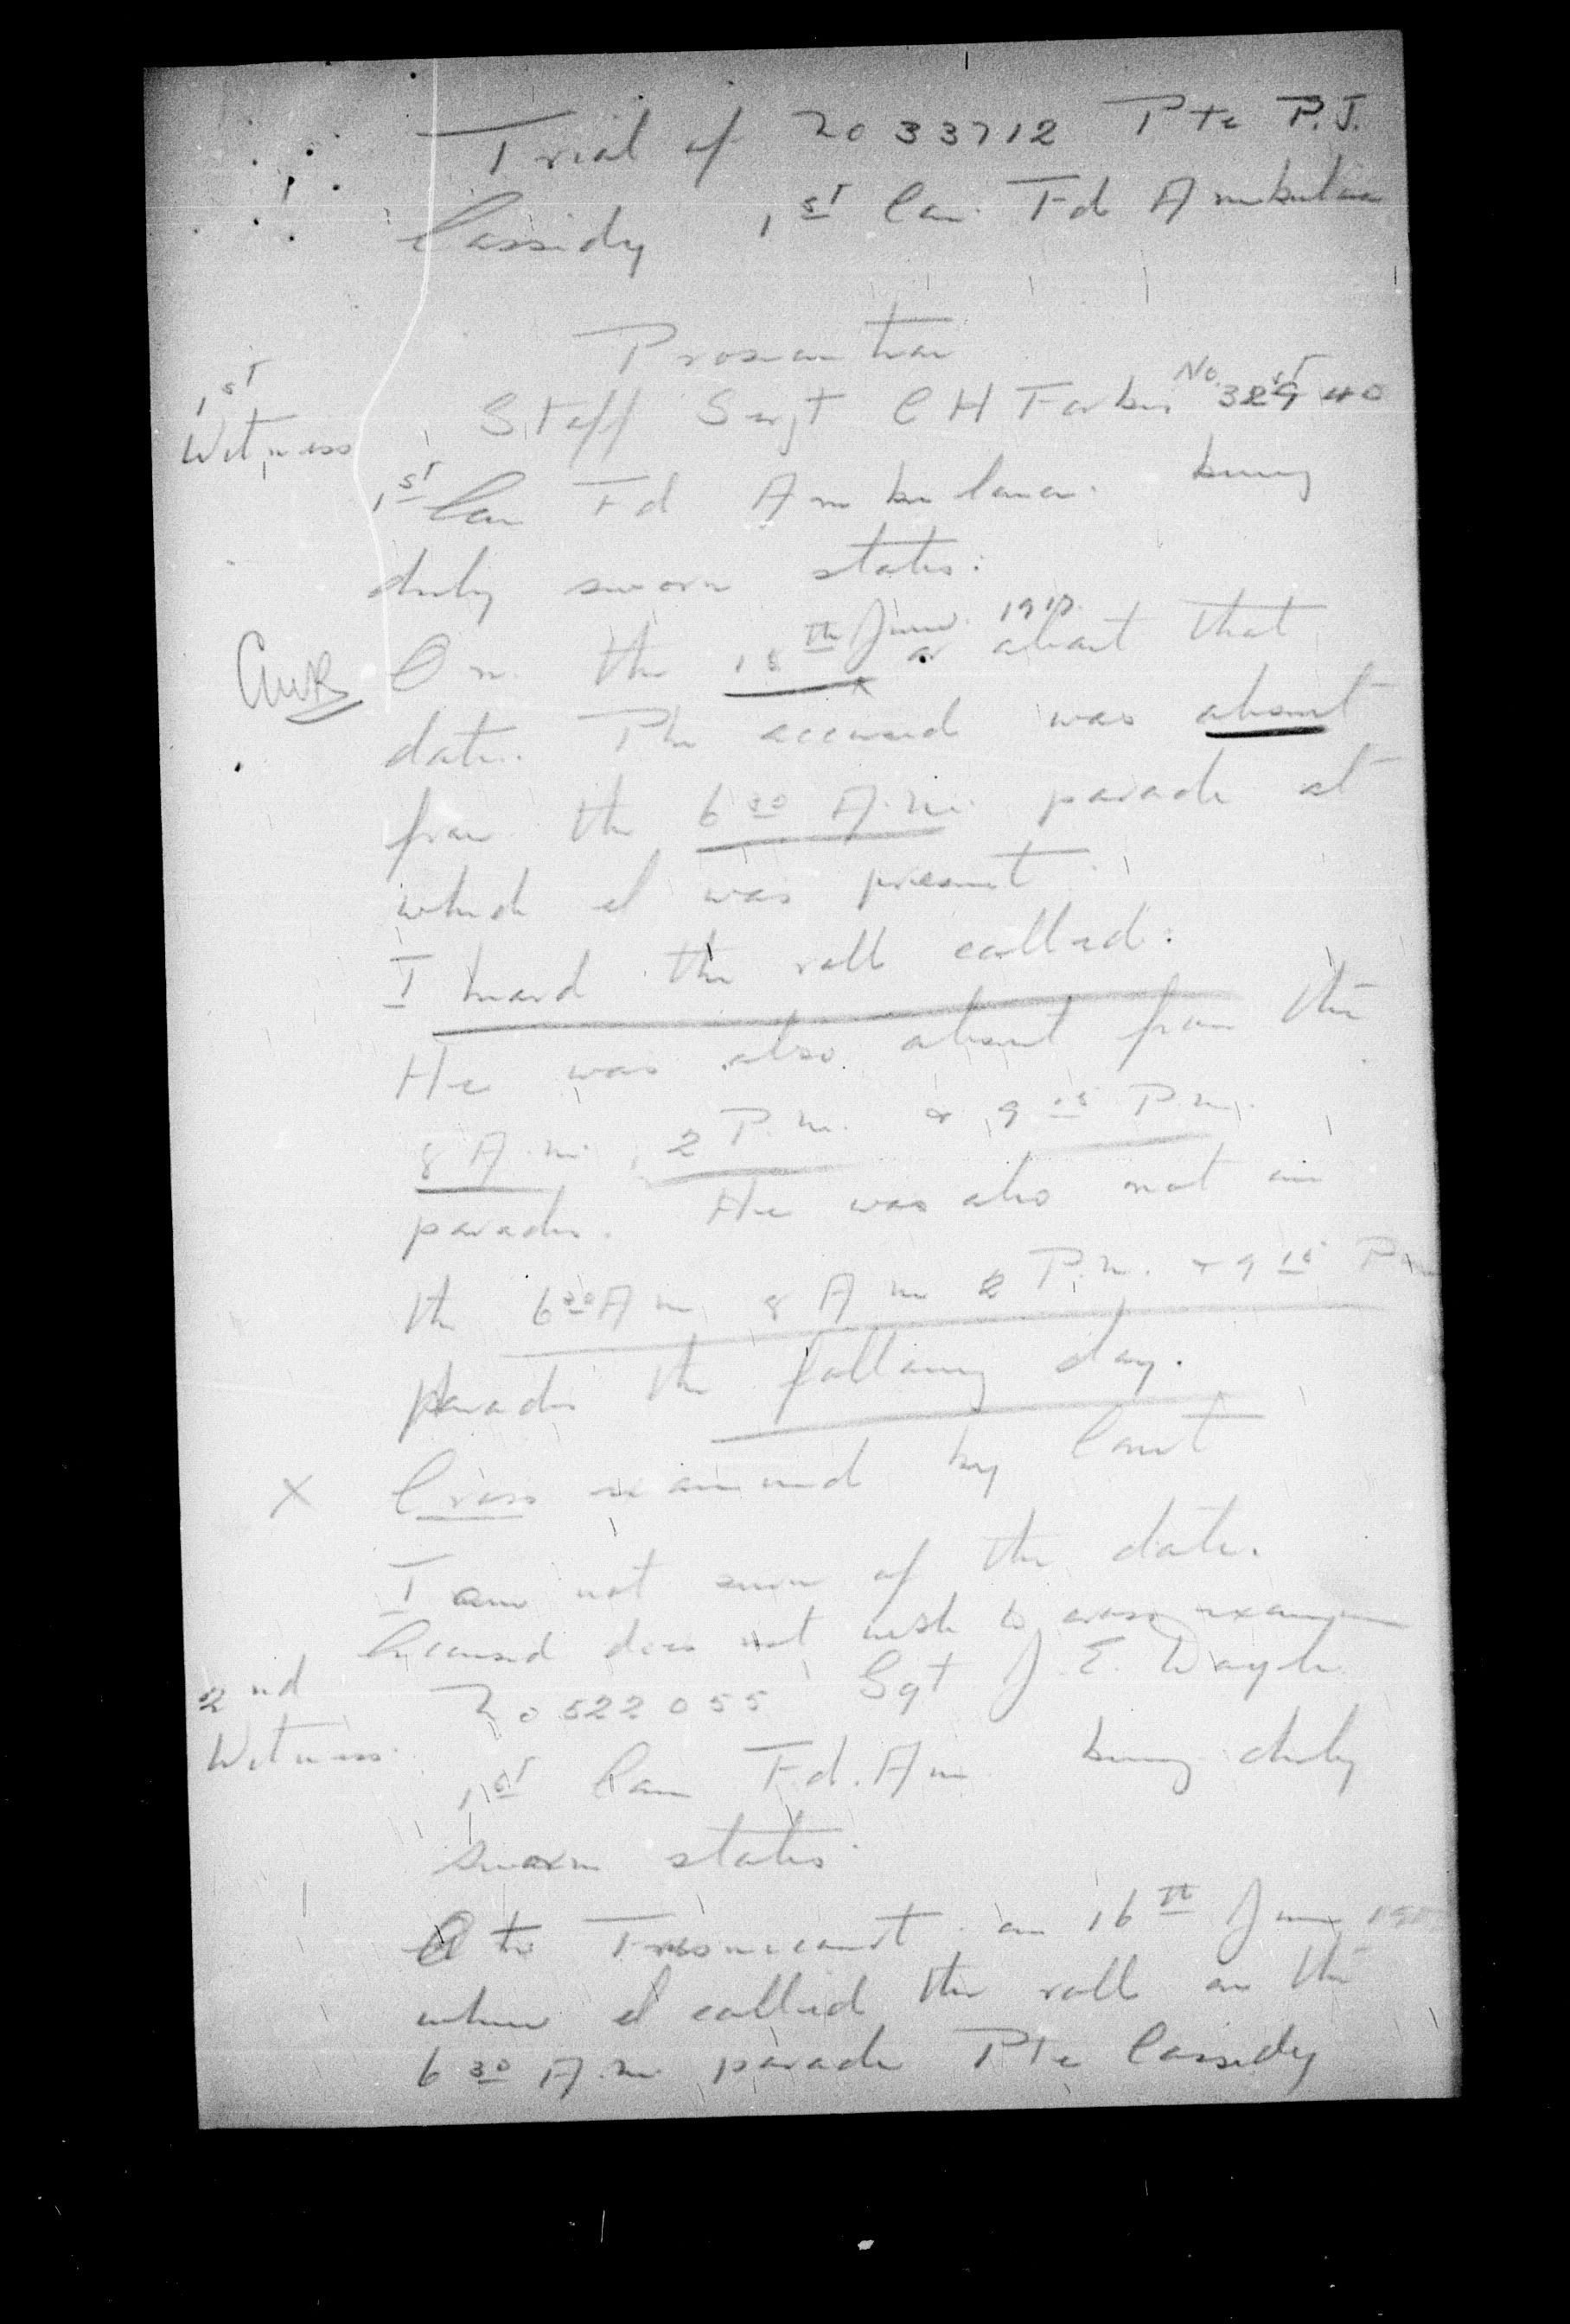 Trial of No 33712 Pte P.J.
Cassidy 1st Can. Fd Ambulance
Prosecution
1st Witness
Staff Sergt C H Forbes No. 32940
1st Can Fd Ambulance. being
duly sworn states:
On the 15th June. 1918. or about that
date. The accused was absent
from the 6 30 A.m. parade at
which I was present.
I heard the roll called.
He was also absent from the
8 A.m., 2 P.m. & 9 15 P.m.
parades. He was also not on
the 6 30 A m, 8 A m 2 P.m. & 9 15 P m
parades the following day.
X Cross examined by Court
I am not sure of the date.
Accused does not wish to cross examine
2nd Witness.
No 522055 Sgt J. E. Doyle
1st Can Fd. Am being duly
sworn states.
At on 16th June
when I called the roll on the
6 30 A.m. parade Pte Cassidy